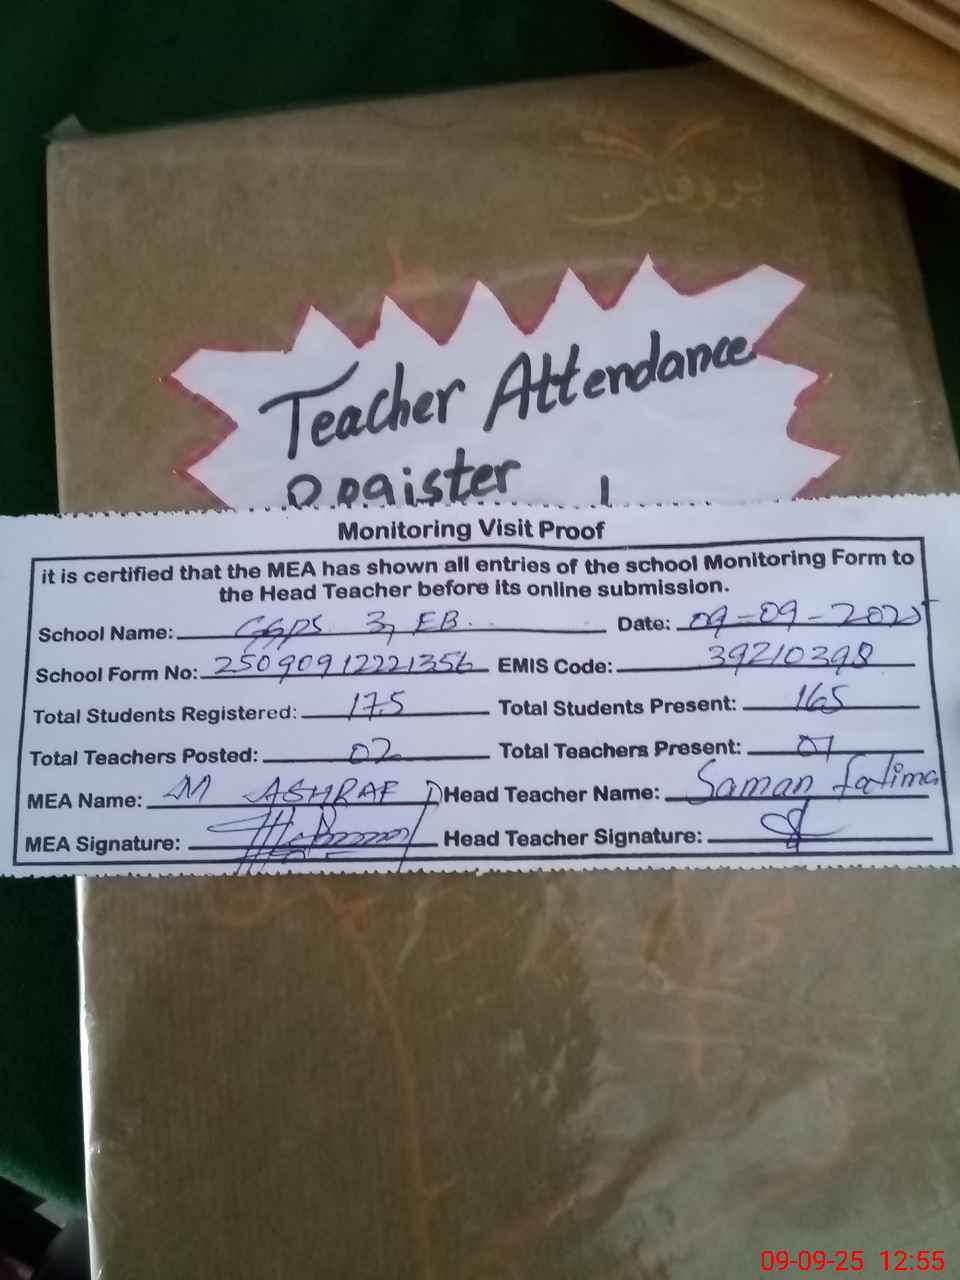 پروفائن
Teacher Attendance
Register
Monitoring Visit Proof
it is certified that the MEA has shown all entries of the school Monitoring Form to
the Head Teacher before its online submission.
School Name: GGPS 3, EB. Date: 09-09-2025
School Form No: 25090912221356 EMIS Code: 39210398
Total Students Registered: 175 Total Students Present: 165
Total Teachers Posted: 02 Total Teachers Present: 01
MEA Name: M ASHRAF D Head Teacher Name: Saman fatima
MEA Signature: Head Teacher Signature:
09-09-25 12:55